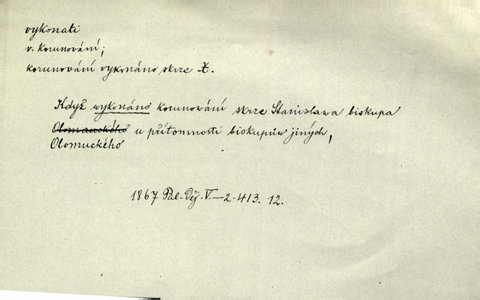 vykonati
v. korunování;
korunování vykonáno skrze X.
Když vykonáno korunování skrze Stanislawa biskupa
Olomauckého u přítomnosti biskupůw jiných,
Olomuckého
1867 Pal. Děj. V.—2. 413. 12.